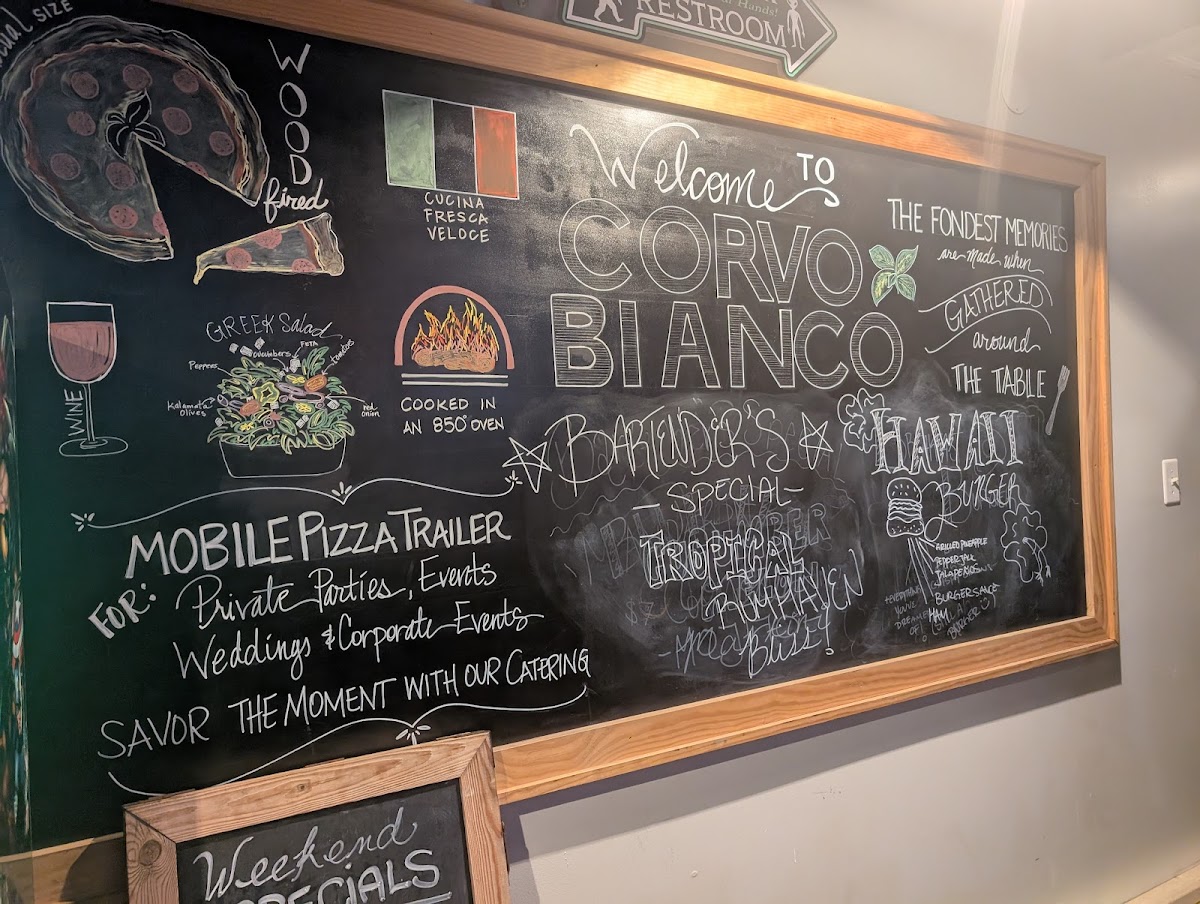 RESTROOM
SIZE
WOOD
fired
CUCINA
FRESCA
VELOCE
Welcome TO
CORVO
BIANCO
THE FONDEST MEMORIES
are made when
GATHERED
around
THE TABLE
WINE
GREEK Salad
FETA
cucumbers
tomatoes
Peppers
Kalamata
Olives
red
onion
COOKED IN
AN 850° OVEN
MOBILE PIZZA TRAILER
FOR:
Private Parties, Events
Weddings & Corporate Events
SAVOR THE MOMENT WITH OUR CATERING
BARTENDER'S
SPECIAL
TROPICAL
Bliss!
HAWAII
BURGER
GRILLED PINEAPPLE
PEPPER JACK
JALAPEÑOS
BURGER SAUCE
HAM
Weekend
SPECIALS